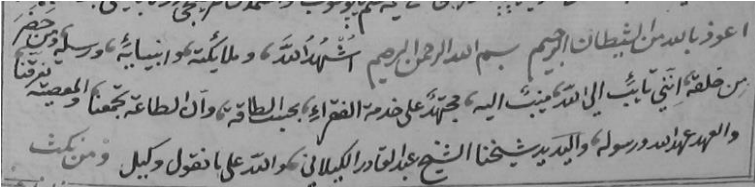 اعوذ بالله من الشيطان الرجيم بسم الله الرحمن الرحيم اشهد الله وملائكته وانبيائه ورسله ومن حضر
من خلقه انني تائب الى الله منيب اليه مجتهد على خدمة الفقراء بحسب الطاقة وان الطاعة تجمعنا والمعصية تفرقنا
والعهد عهد الله ورسوله واليد يد شيخنا الشيخ عبد القادر الكيلاني والله على ما نقول وكيل ومن نكث